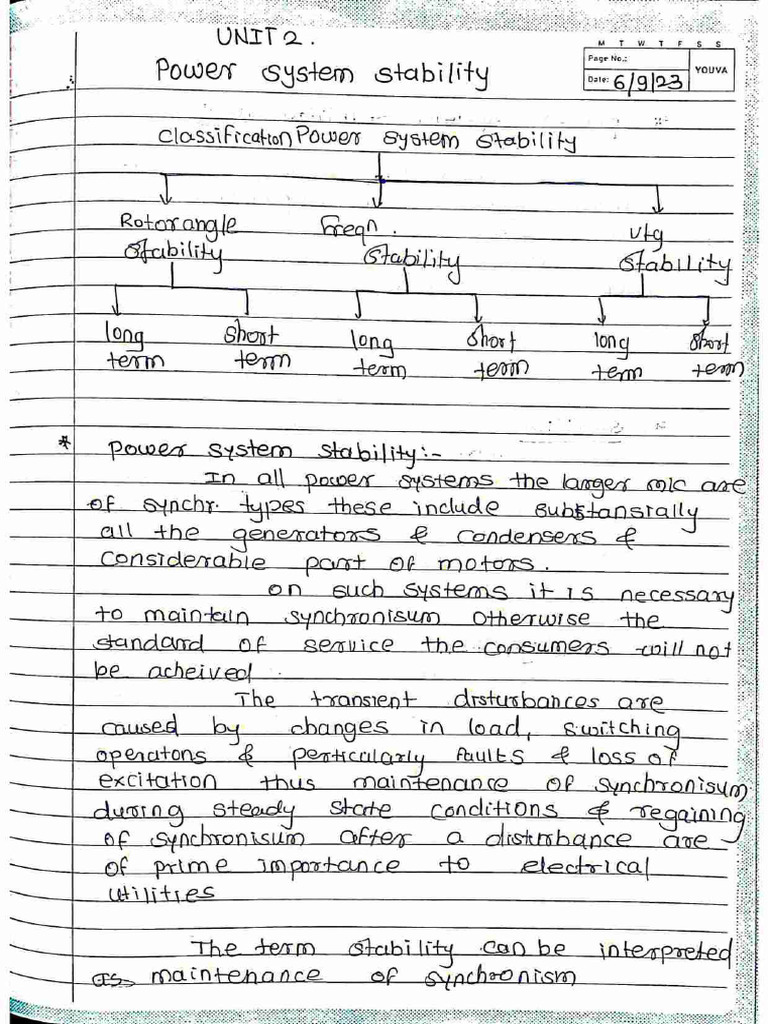 UNIT 2.
Power system stability
M T W T F S S
Page No.:
YOUVA
Date: 6/9/23
Classification Power system stability
Rotorangle Freqn. vtg
stability stability stability
long short long short long short
term term term term term term
* Power system stability:-
In all power systems the larger m/c are
of synchr. types these include substansially
all the generators & condensers &
considerable part of motors.
on such systems it is necessary
to maintain synchronisum otherwise the
standard of service the consumers will not
be acheived.
The transient disturbances are
caused by changes in load, switching
operatons & perticularly faults & loss of
excitation thus maintenance of synchronisum
during steady state conditions & regaining
of synchronisum after a disturbance are
of prime importance to electrical
utilities
The term stability can be interpreted
as maintenance of synchronism